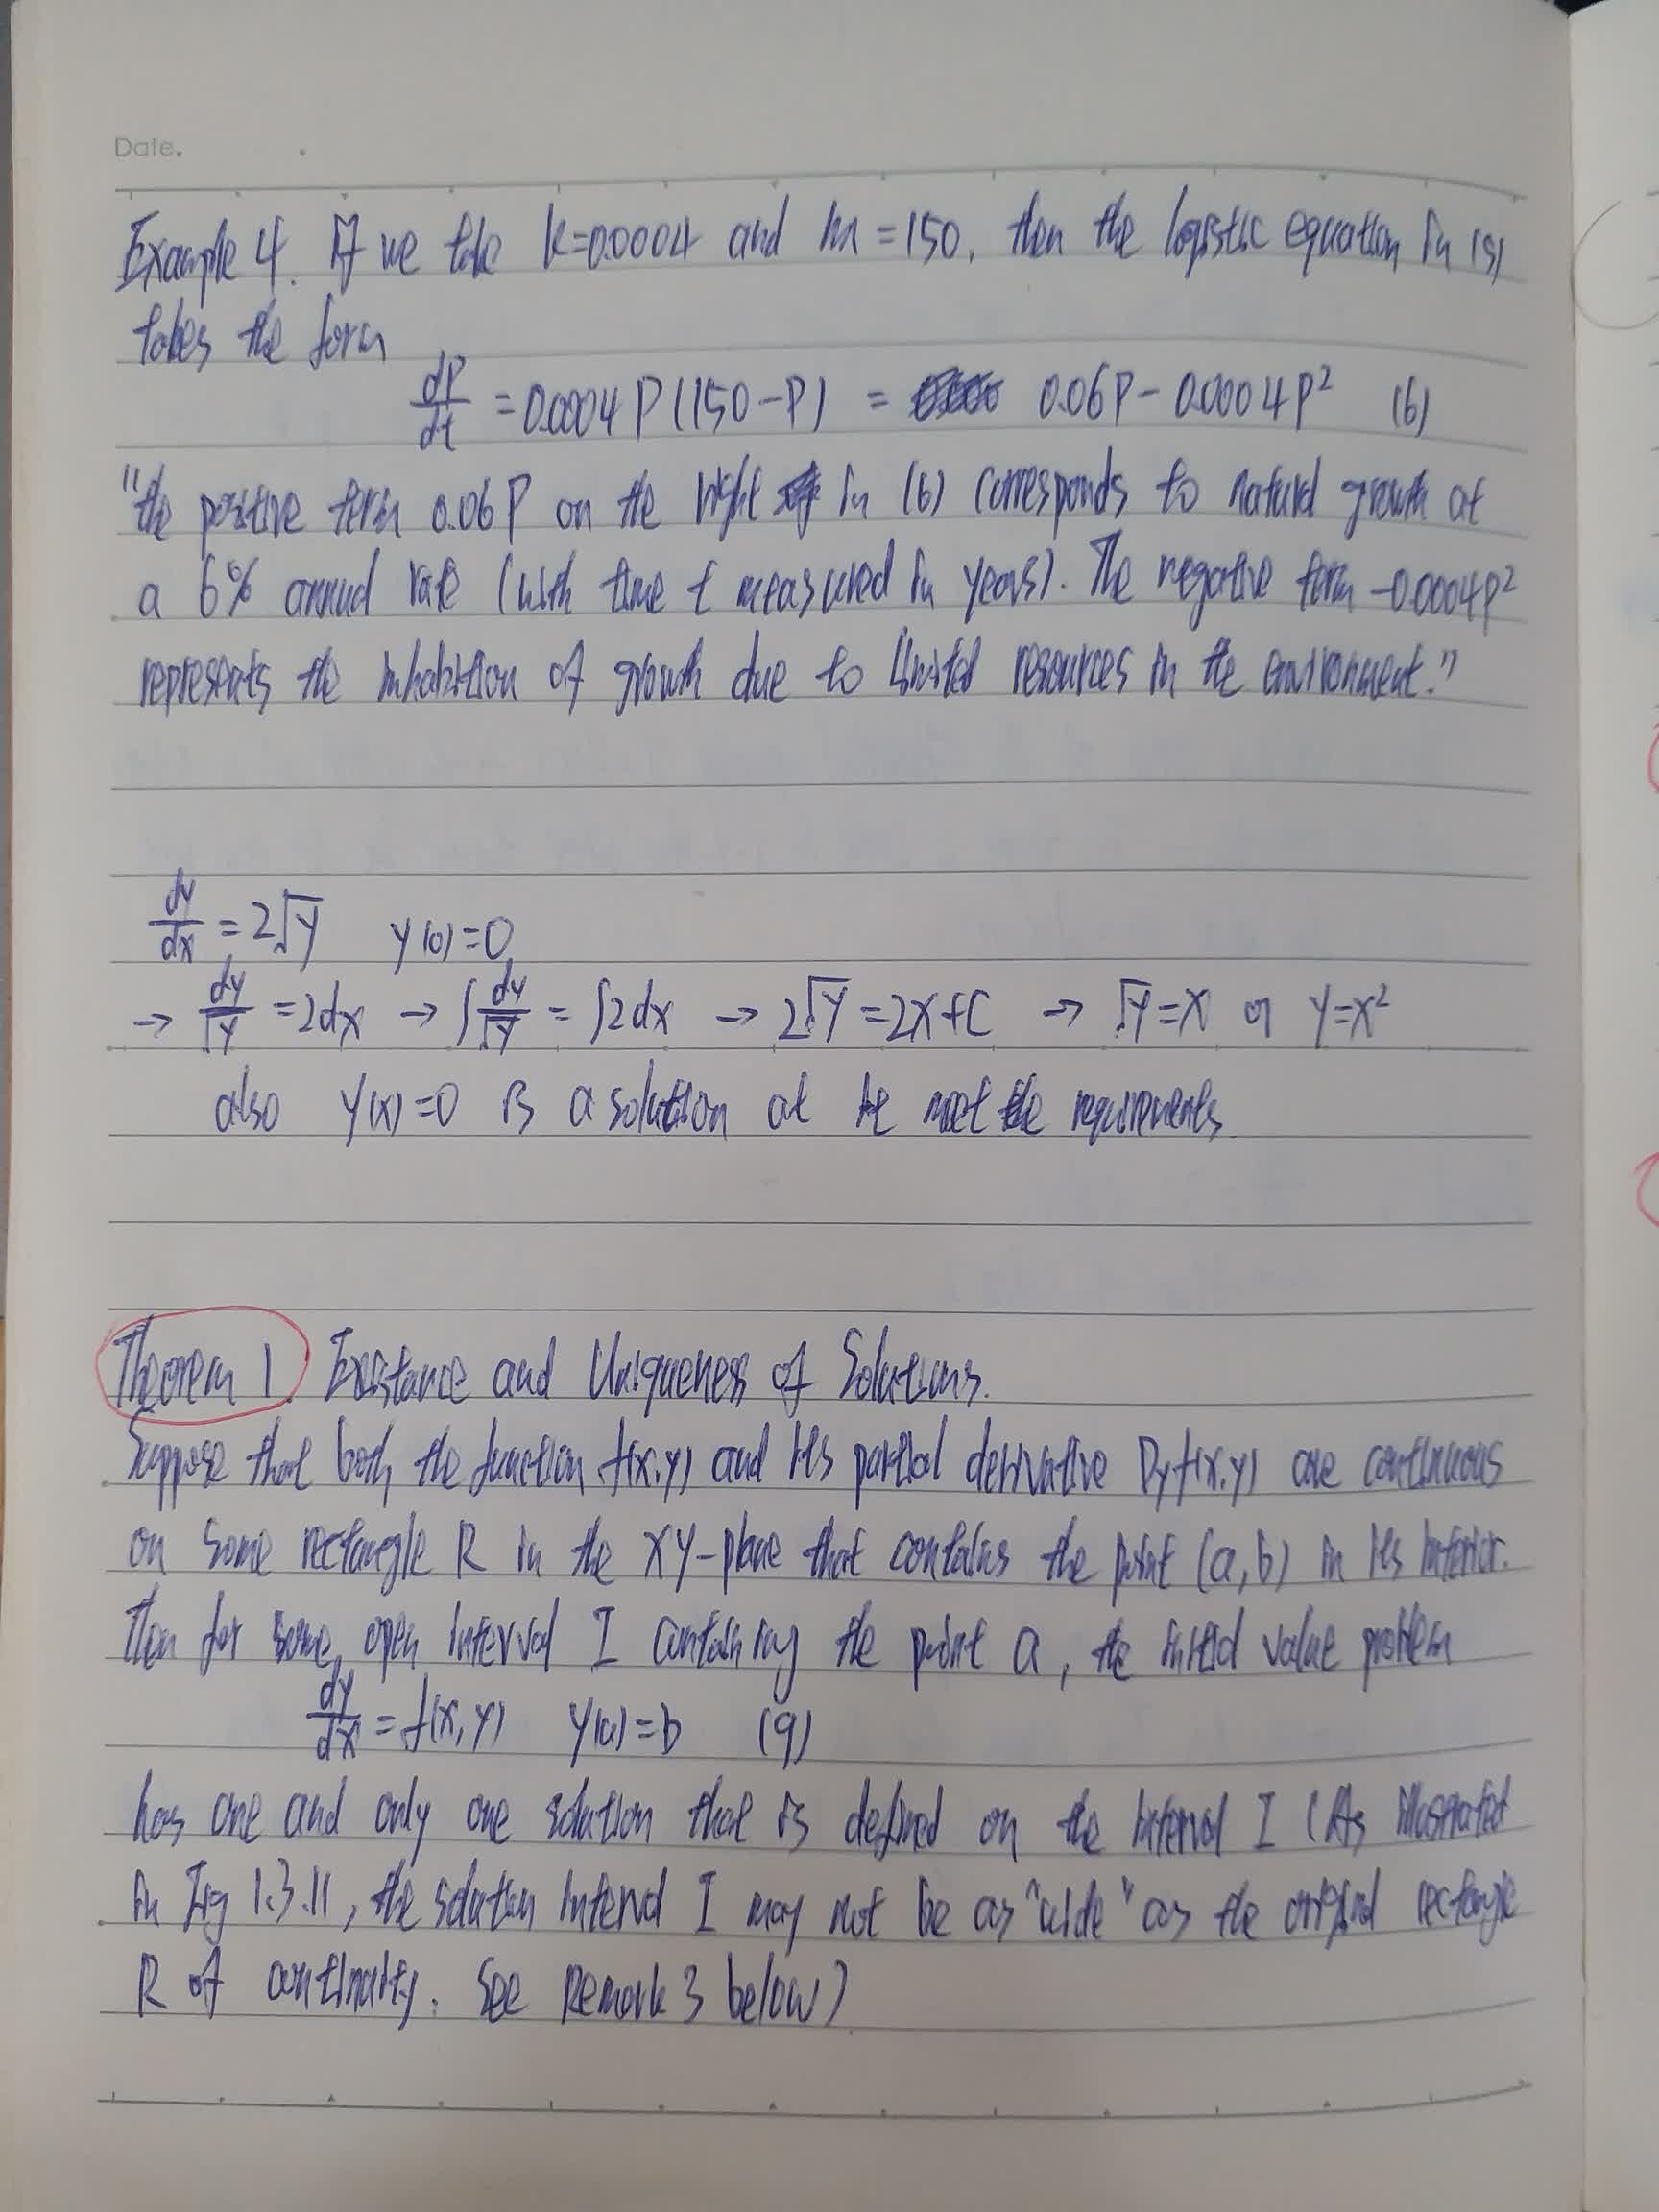 Date.
Example 4. If we take k=0.0004 and m=150, then the logistic equation in (5)
takes the form
dP/dt = 0.0004P(150-P) = 0.06P - 0.0004P² (6)
"the positive term 0.06P on the right in (6) corresponds to natural growth at
a 6% annual rate (with time t measured in years). The negative term -0.0004P²
represents the inhabition of growth due to limited resources in the environment."
dy/dx = 2√y y(0)=0
→ dy/√y = 2dx → ∫dy/√y = ∫2dx → 2√y = 2x+C → √y = x or y=x²
also y(x)=0 is a solution at it meet the requirements
Theorem 1. Existance and Uniqueness of Solutions.
Suppose that both the function f(x,y) and its partial derivative Dyf(x,y) are continuous
on some rectangle R in the xy-plane that contains the point (a,b) in its interior.
Then for some open interval I containing the point a, the initial value problem
dy/dx = f(x,y) y(a)=b (9)
has one and only one solution that is defined on the interval I (As illustrated
in Fig 1.3.11, the solution interval I may not be as "wide" as the original rectangle
R of continuity. See Remark 3 below)